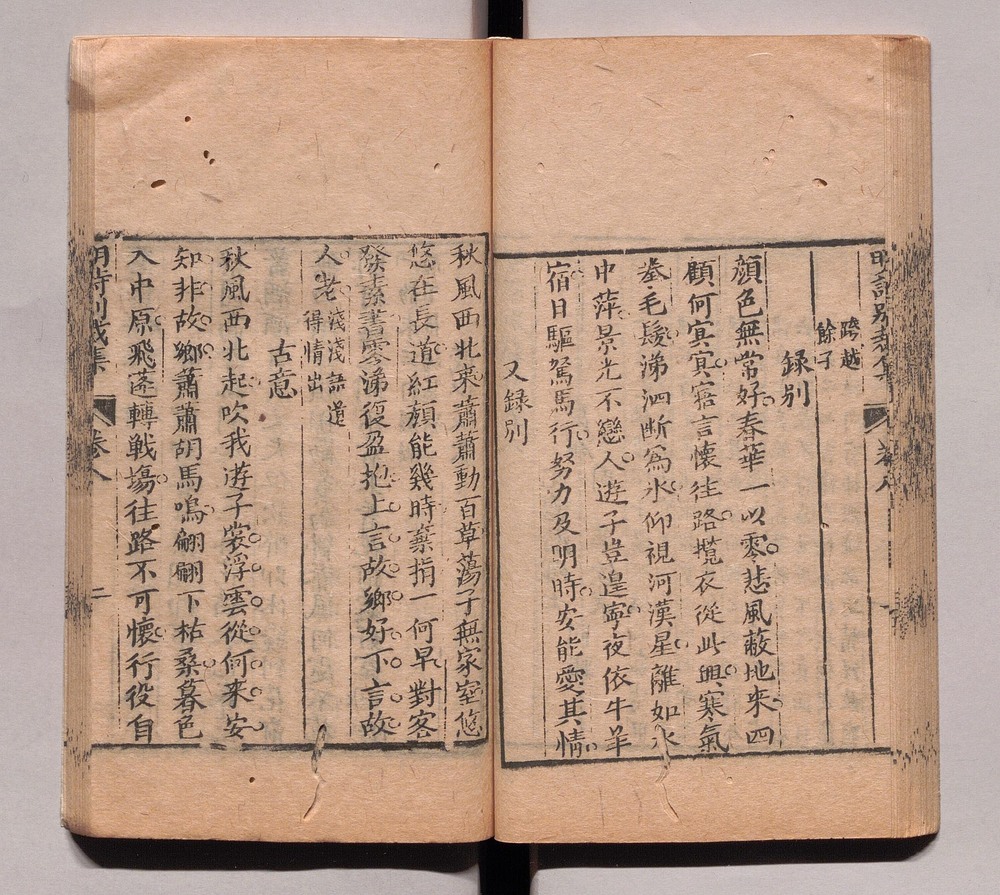 明詩別裁集
卷八
跨越
餘子
録別
顔色無常好春華一以零悲風蔽地来四
顧何寞寞寤言懐往路攬衣從此興寒氣
卷毛髮涕泗断為氷仰視河漢星離如水
中萍景光不戀人遊子豈遑寧夜依牛羊
宿日驅駑馬行努力及明時安能愛其情
又録別
秋風西北來蕭蕭動百草蕩子無家室悠
悠在長道紅顔能幾時棄捐一何早對客
發素書零涕復盈抱上言故鄉好下言故
人老
淺淺語道
得情出
古意
秋風西北起吹我遊子裳浮雲從何来安
知非故鄉蕭蕭胡馬鳴翩翩下枯桑暮色
入中原飛蓬轉戦塲往路不可懐行役自
明詩別裁集
卷八
二